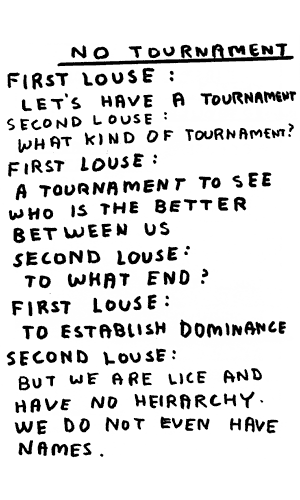 NO TOURNAMENT
FIRST LOUSE :
LET'S HAVE A TOURNAMENT
SECOND LOUSE :
WHAT KIND OF TOURNAMENT?
FIRST LOUSE :
A TOURNAMENT TO SEE
WHO IS THE BETTER
BETWEEN US
SECOND LOUSE:
TO WHAT END ?
FIRST LOUSE:
TO ESTABLISH DOMINANCE
SECOND LOUSE:
BUT WE ARE LICE AND
HAVE NO HEIRARCHY.
WE DO NOT EVEN HAVE
NAMES.